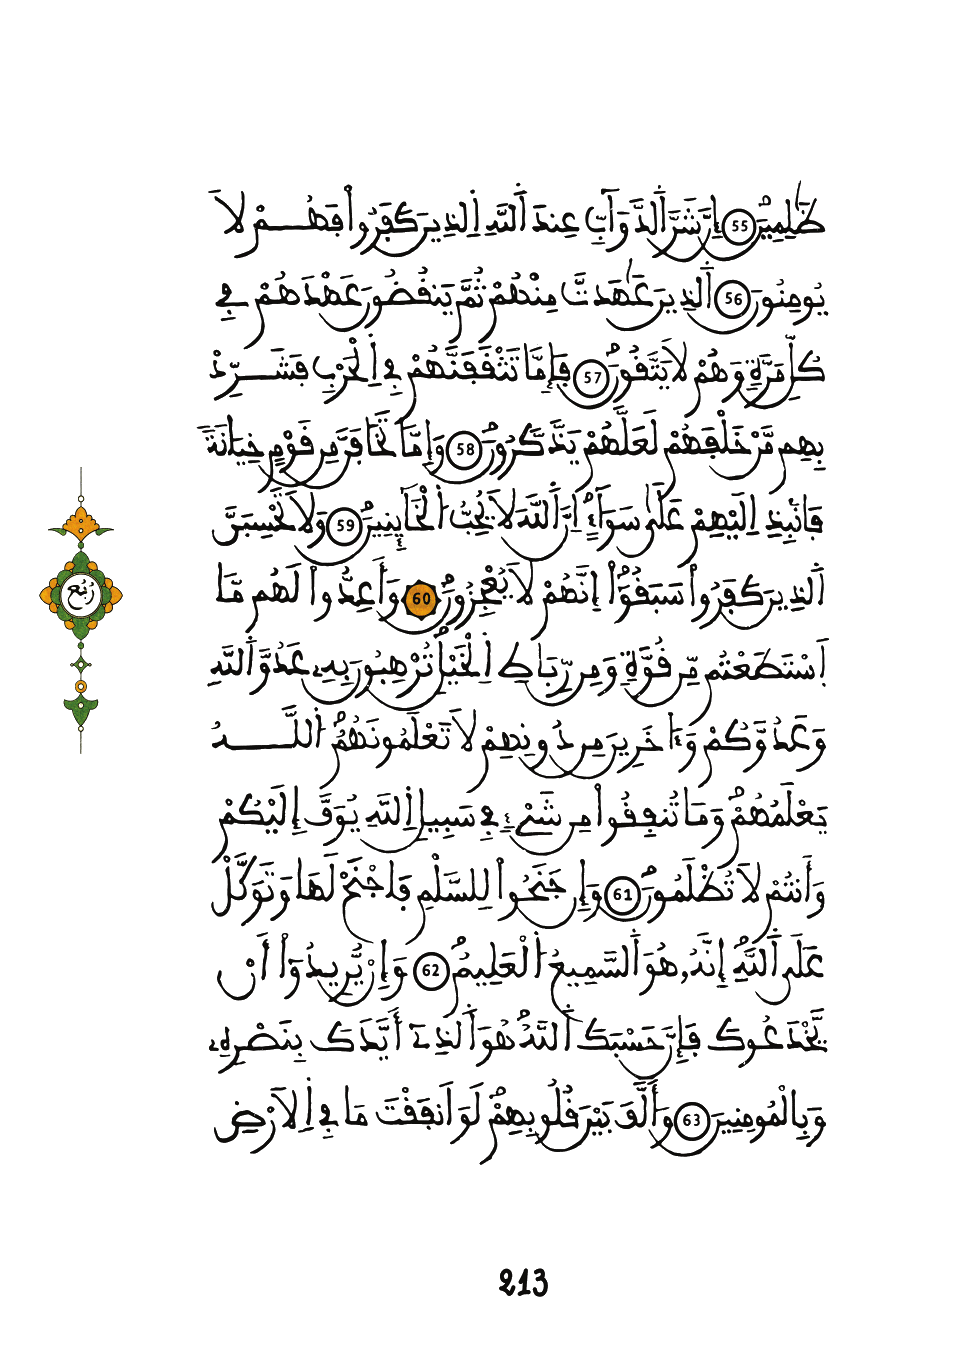 ظَٰلِمِينَ 55 إِنَّ شَرَّ اَ۬لدَّوَآبِّ عِندَ اَ۬للَّهِ اِ۬لذِينَ كَفَرُواْ فَهُمْ لَا
يُومِنُونَ 56 اَ۬لذِينَ عَٰهَدتَّ مِنْهُمْ ثُمَّ يَنقُضُونَ عَهْدَهُمْ فِے
كُلِّ مَرَّةٍ وَهُمْ لَا يَتَّقُونَ 57 فَإِمَّا تَثْقَفَنَّهُمْ فِے اِ۬لْحَرْبِ فَشَرِّدْ
بِهِم مَّنْ خَلْفَهُمْ لَعَلَّهُمْ يَذَّكَّرُونَ 58 وَإِمَّا تَخَافَنَّ مِن قَوْمٍ خِيَانَةً
فَانۢبِذِ اِلَيْهِمْ عَلَىٰ سَوَآءٍ اِنَّ اَ۬للَّهَ لَا يُحِبُّ اُ۬لْخَآئِنِينَ 59 وَلَا تَحْسِبَنَّ
اَ۬لذِينَ كَفَرُواْ سَبَقُوٓاْ إِنَّهُمْ لَا يُعْجِزُونَ 60 وَأَعِدُّواْ لَهُم مَّا
اَ۪سْتَطَعْتُم مِّن قُوَّةٍ وَمِن رِّبَاطِ اِ۬لْخَيْلِ تُرْهِبُونَ بِهِۦ عَدُوَّ اَ۬للَّهِ
وَعَدُوَّكُمْ وَءَاخَرِينَ مِن دُونِهِمْ لَا تَعْلَمُونَهُمُ اُ۬للَّهُ
يَعْلَمُهُمْ وَمَا تُنفِقُواْ مِن شَےْءٍ فِے سَبِيلِ اِ۬للَّهِ يُوَفَّ إِلَيْكُمْ
وَأَنتُمْ لَا تُظْلَمُونَ 61 وَإِن جَنَحُواْ لِلسَّلْمِ فَاجْنَحْ لَهَا وَتَوَكَّلْ
عَلَى اَ۬للَّهِ إِنَّهُۥ هُوَ اَ۬لسَّمِيعُ اُ۬لْعَلِيمُ 62 وَإِنْ يُّرِيدُوٓاْ أَنْ
يَّخْدَعُوكَ فَإِنَّ حَسْبَكَ اَ۬للَّهُ هُوَ اَ۬لذِےٓ أَيَّدَكَ بِنَصْرِهِۦ
وَبِالْمُومِنِينَ 63 وَأَلَّفَ بَيْنَ قُلُوبِهِمْ لَوَ اَنفَقْتَ مَا فِے اِ۬لَارْضِ
ربع
213